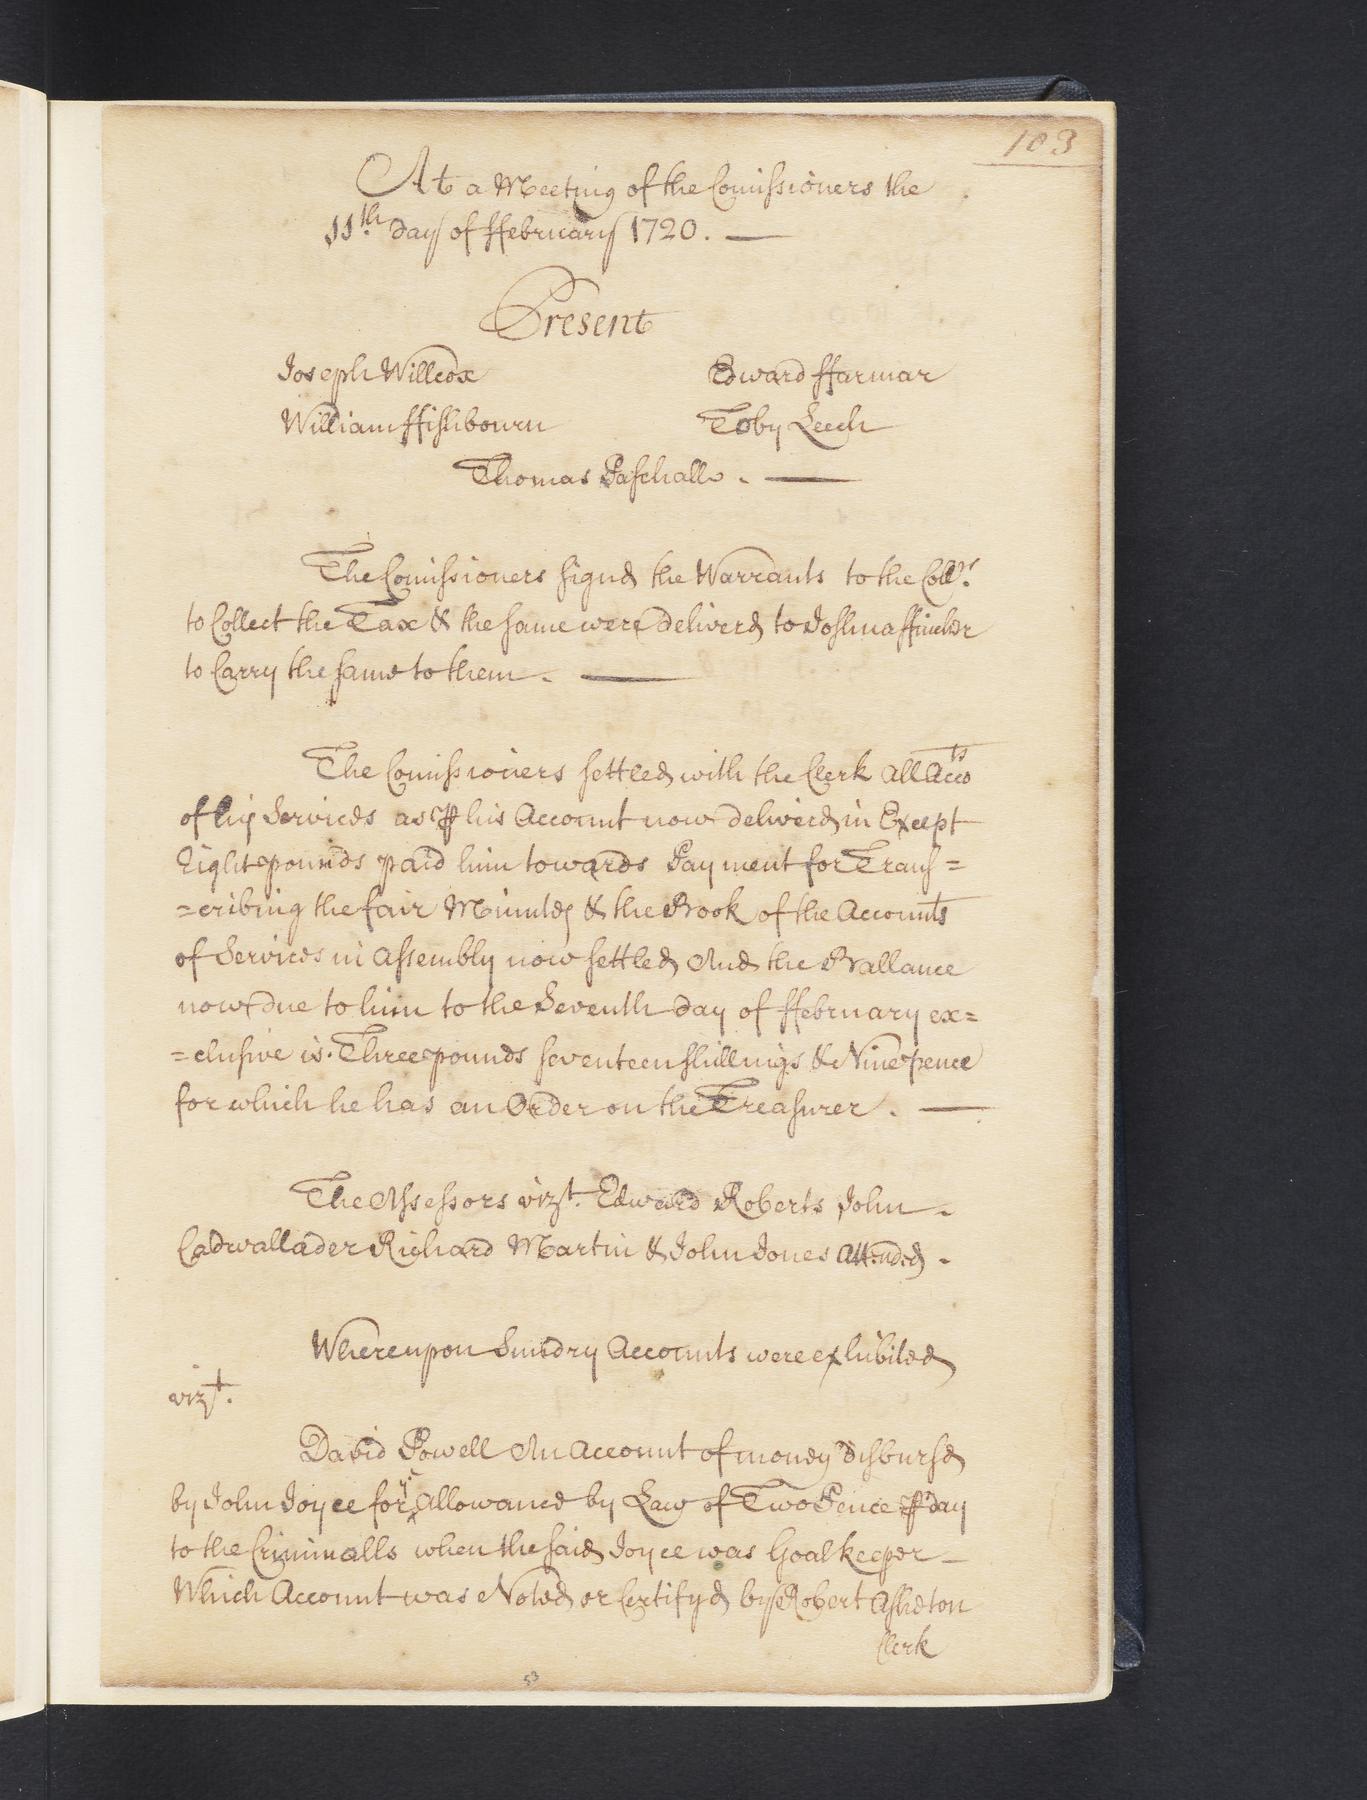 103
At a Meeting of the Comissioners the
11th. day of ffebruary 1720. —
Present
Joseph Willcox Edward ffarmar
William ffishbourn Toby Leech
Thomas Paschall. —
The Comissioners signd the Warrants to the Collrs.
to Collect the Tax & the same were deliverd to Joshua ffincher
to Carry the same to them. —
The Comissioners settled with the Clerk all Accots
of his Services as ⅌ his Account now deliverd in Except
Eight pounds paid him towards Payment for Trans=
=cribing the fair Minutes & the Book of the Accounts
of Services in Assembly now settled And the Ballance
now due to him to the Seventh day of ffebruary ex=
=clusive is. Three pounds seventeen shillings & Nine pence
for which he has an Order on the Treasurer. —
The Assessors vizt. Edward Roberts John
Cadwallader Richard Martin & John Jones Attended.
Whereupon Sundry Accounts were exhibited
vizt.
David Powell An Account of money disbursd
by John Joyce for ye. Allowance by Law of Two Pence ⅌ day
to the Criminalls when the said Joyce was Goalkeeper —
Which Account was Noted or Certifyd by Robert Assheton
Clerk
53